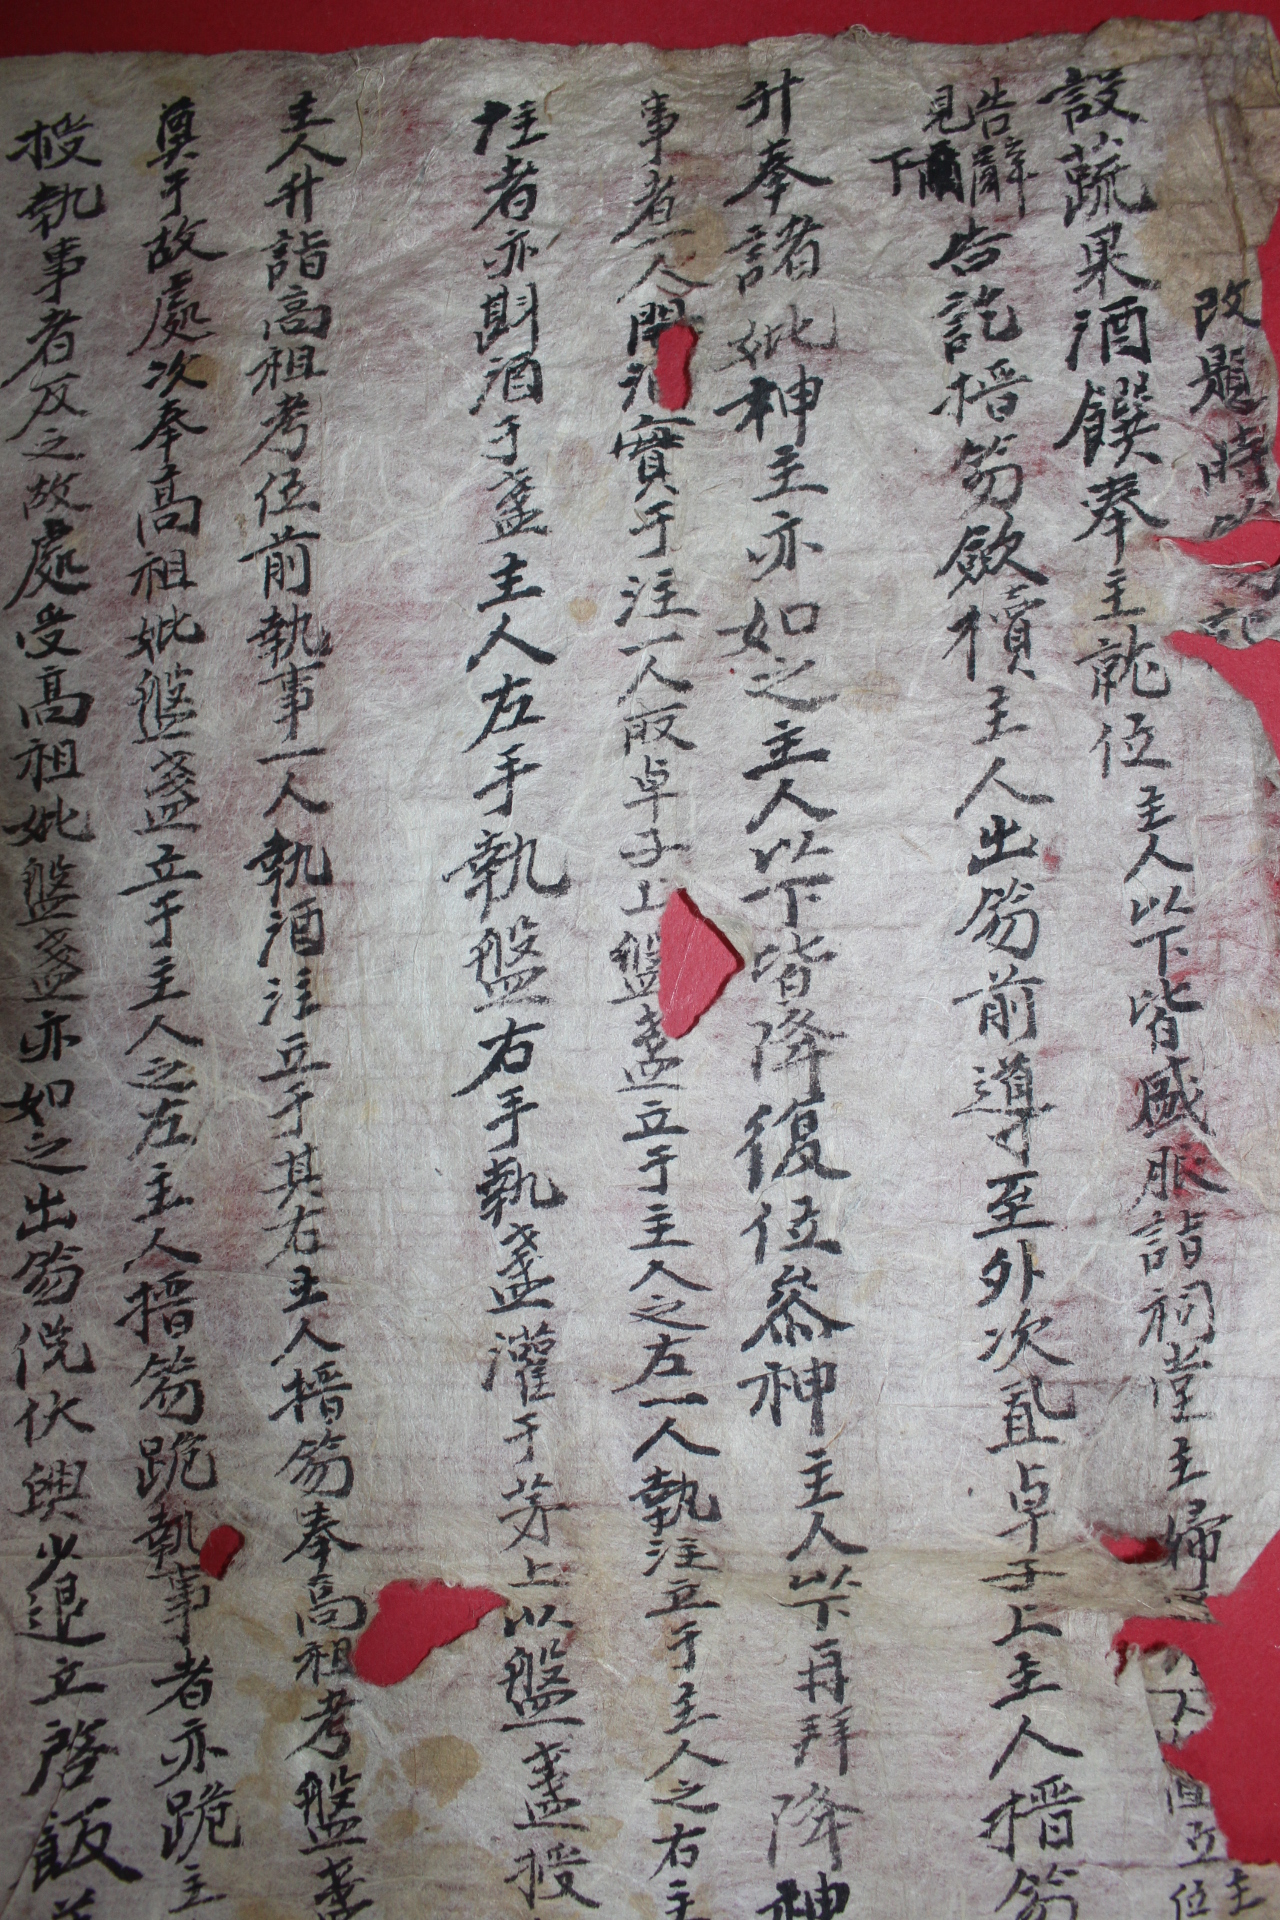 改題時
設蔬果酒饌奉主就位主人以下皆盛服詣祠堂主婦
直立位
主
告辭
見禰
下
告訖搢笏斂櫝主人出笏前導至外次置卓子上主人搢笏
升奉諸妣神主亦如之主人以下皆降復位叅神主人以下再拜降神
事者一人開酒實于注一人取卓子上盤盞立于主人之左一人執注立于主人之右主
注者亦斟酒于盞主人左手執盤右手執盞灌于茅上以盤盞授
主人升詣高祖考位前執事一人執酒注立于其右主人搢笏奉高祖考盤盞
奠于故處次奉高祖妣盤盞立于主人之左主人搢笏跪執事者亦跪主
授執事者反之故處受高祖妣盤盞亦如之出笏俛伏興少退立啓飯盖